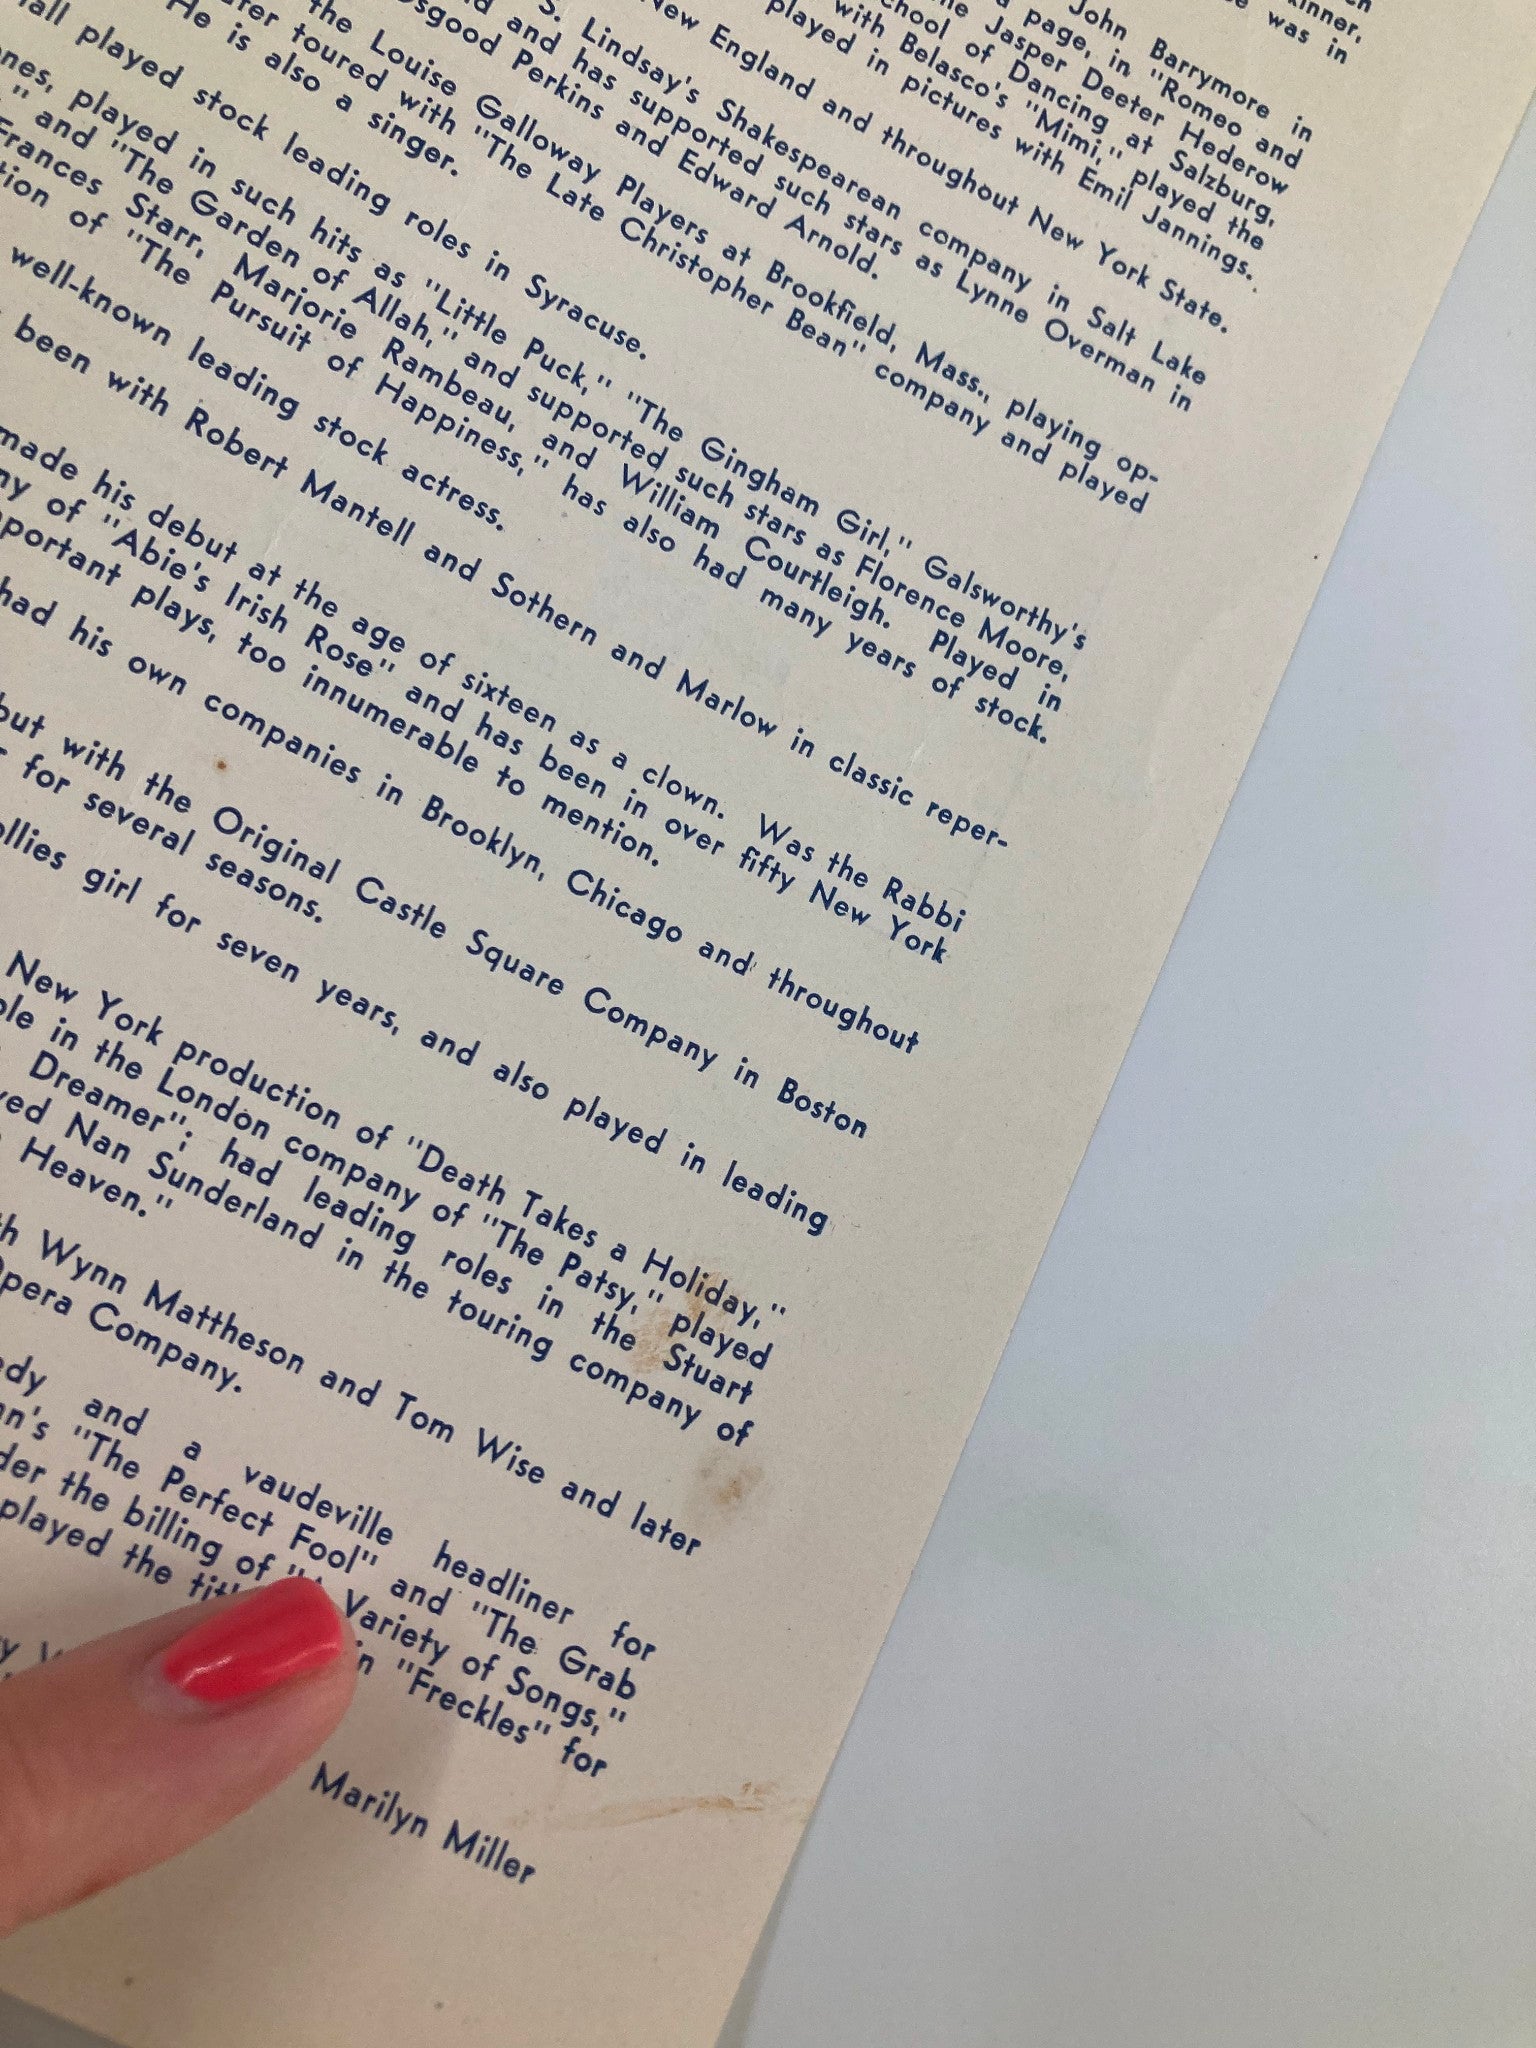 kinner,
was in
John Barrymore in
page, in "Romeo and
Jasper Deeter Hederow
of Dancing at Salzburg,
with Belasco's "Mimi," played the
played in pictures with Emil Jannings.
New England and throughout New York State.
S. Lindsay's Shakespearean company in Salt Lake
and has supported such stars as Lynne Overman in
sgood Perkins and Edward Arnold.
the Louise Galloway Players at Brookfield, Mass., playing op-
toured with "The Late Christopher Bean" company and played
He is also a singer.
all played stock leading roles in Syracuse.
nes, played in such hits as "Little Puck," "The Gingham Girl," Galsworthy's
" and "The Garden of Allah," and supported such stars as Florence Moore,
Frances Starr, Marjorie Rambeau, and William Courtleigh. Played in
tion of "The Pursuit of Happiness," has also had many years of stock.
well-known leading stock actress.
been with Robert Mantell and Sothern and Marlow in classic reper-
made his debut at the age of sixteen as a clown. Was the Rabbi
ny of "Abie's Irish Rose" and has been in over fifty New York
portant plays, too innumerable to mention.
had his own companies in Brooklyn, Chicago and throughout
but with the Original Castle Square Company in Boston
for several seasons.
ollies girl for seven years, and also played in leading
New York production of "Death Takes a Holiday,"
ole in the London company of "The Patsy," played
Dreamer"; had leading roles in the Stuart
yed Nan Sunderland in the touring company of
Heaven."
th Wynn Mattheson and Tom Wise and later
Opera Company.
edy and a vaudeville headliner for
nn's "The Perfect Fool" and "The Grab
der the billing of "A Variety of Songs,"
played the tit in "Freckles" for
Marilyn Miller